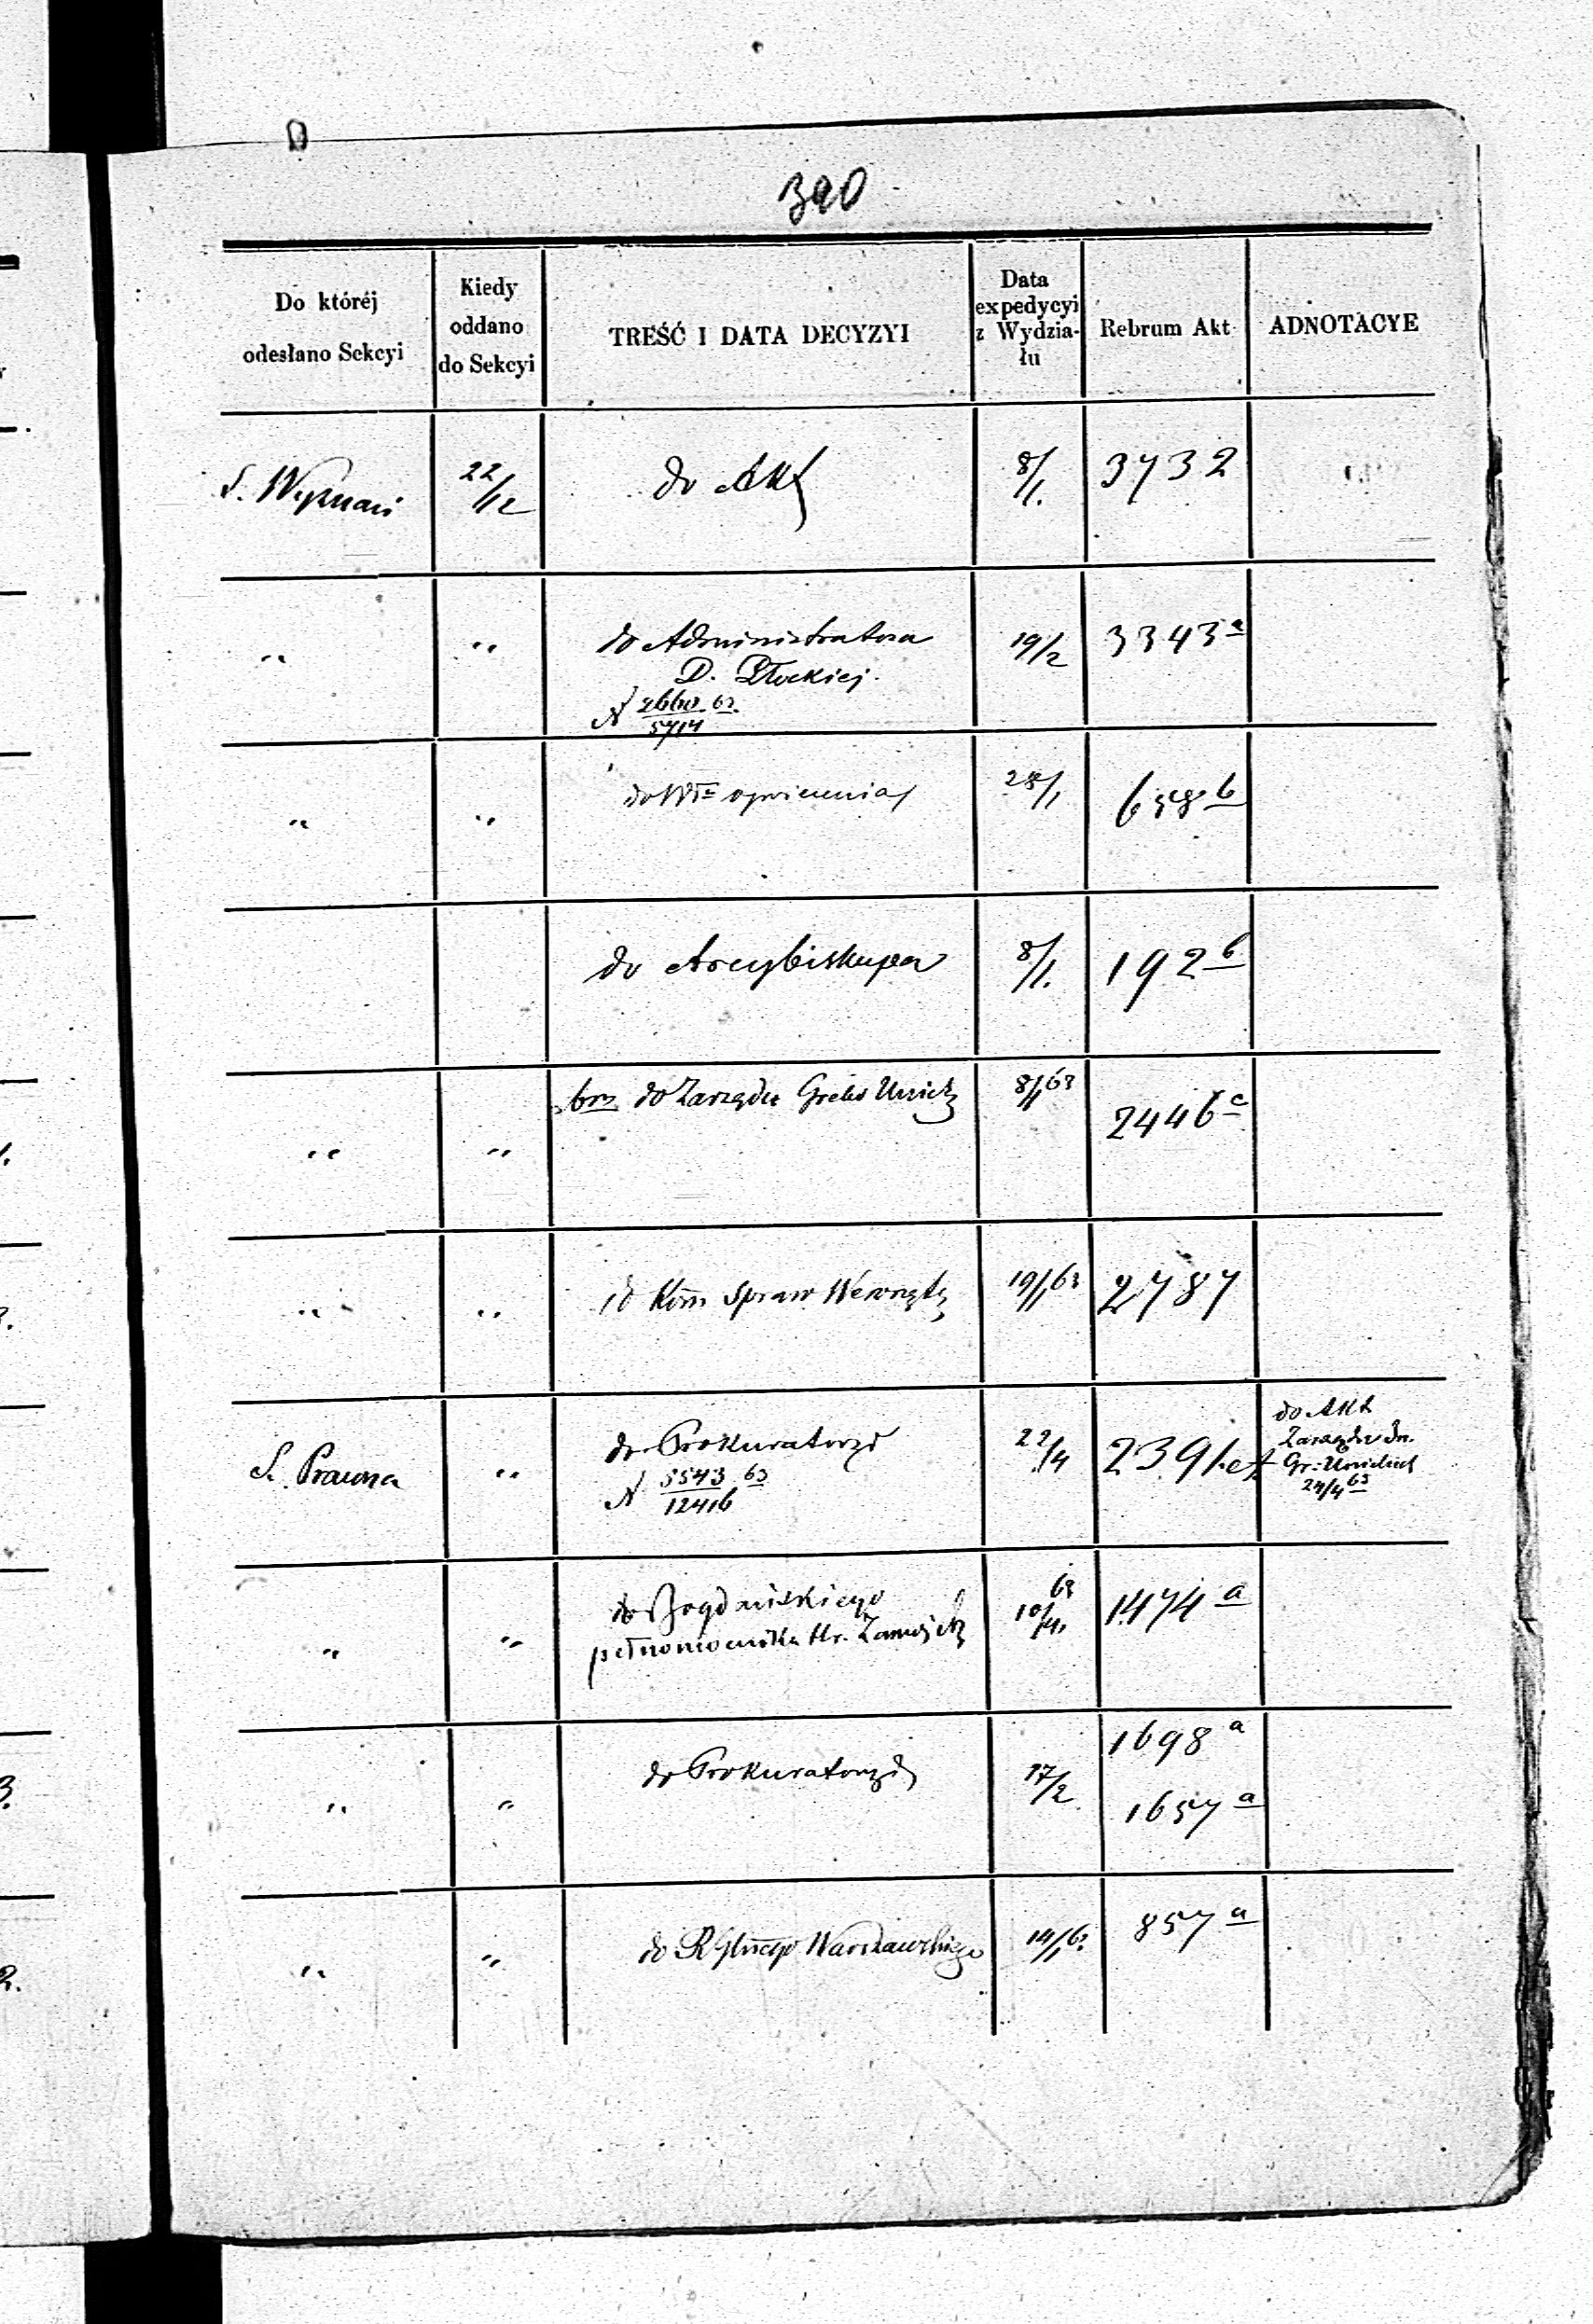 390
Do któréj
odesłano Sekcyi
Kiedy
oddano
do Sekcyi
TREŚĆ I DATA DECYZYI
Data
expedycyi
z Wydzia-
łu
Rebrum Akt
ADNOTACYE
S. Wyznań
22/12
do Akt
8/1.
3732
" "
do Administratora
D. Płockiej.
N
5714
19/2
3343 a
" "
28/1
658 b
do Arcybiskupa
8/1.
192 b
" "
do Zarządu Greko Unick
8/1 63
2446 c
" "
d Kom Spraw Wewnętz
19/1 63
2787
S. Prawna
"
do Prokuratoryi
N 3543 63
12416
22/4
2391.
do Akt
Zarządu
Gr: Unickich
24/4 63
" "
do Bogdańskiego
pełnomocnika Hr. Zamojsk
63
10/4.
1474 a
" "
do Prokuratoryi
17/2
1698 a
1657 a
" "
do R Warszawskiego
14/1 63
857 a